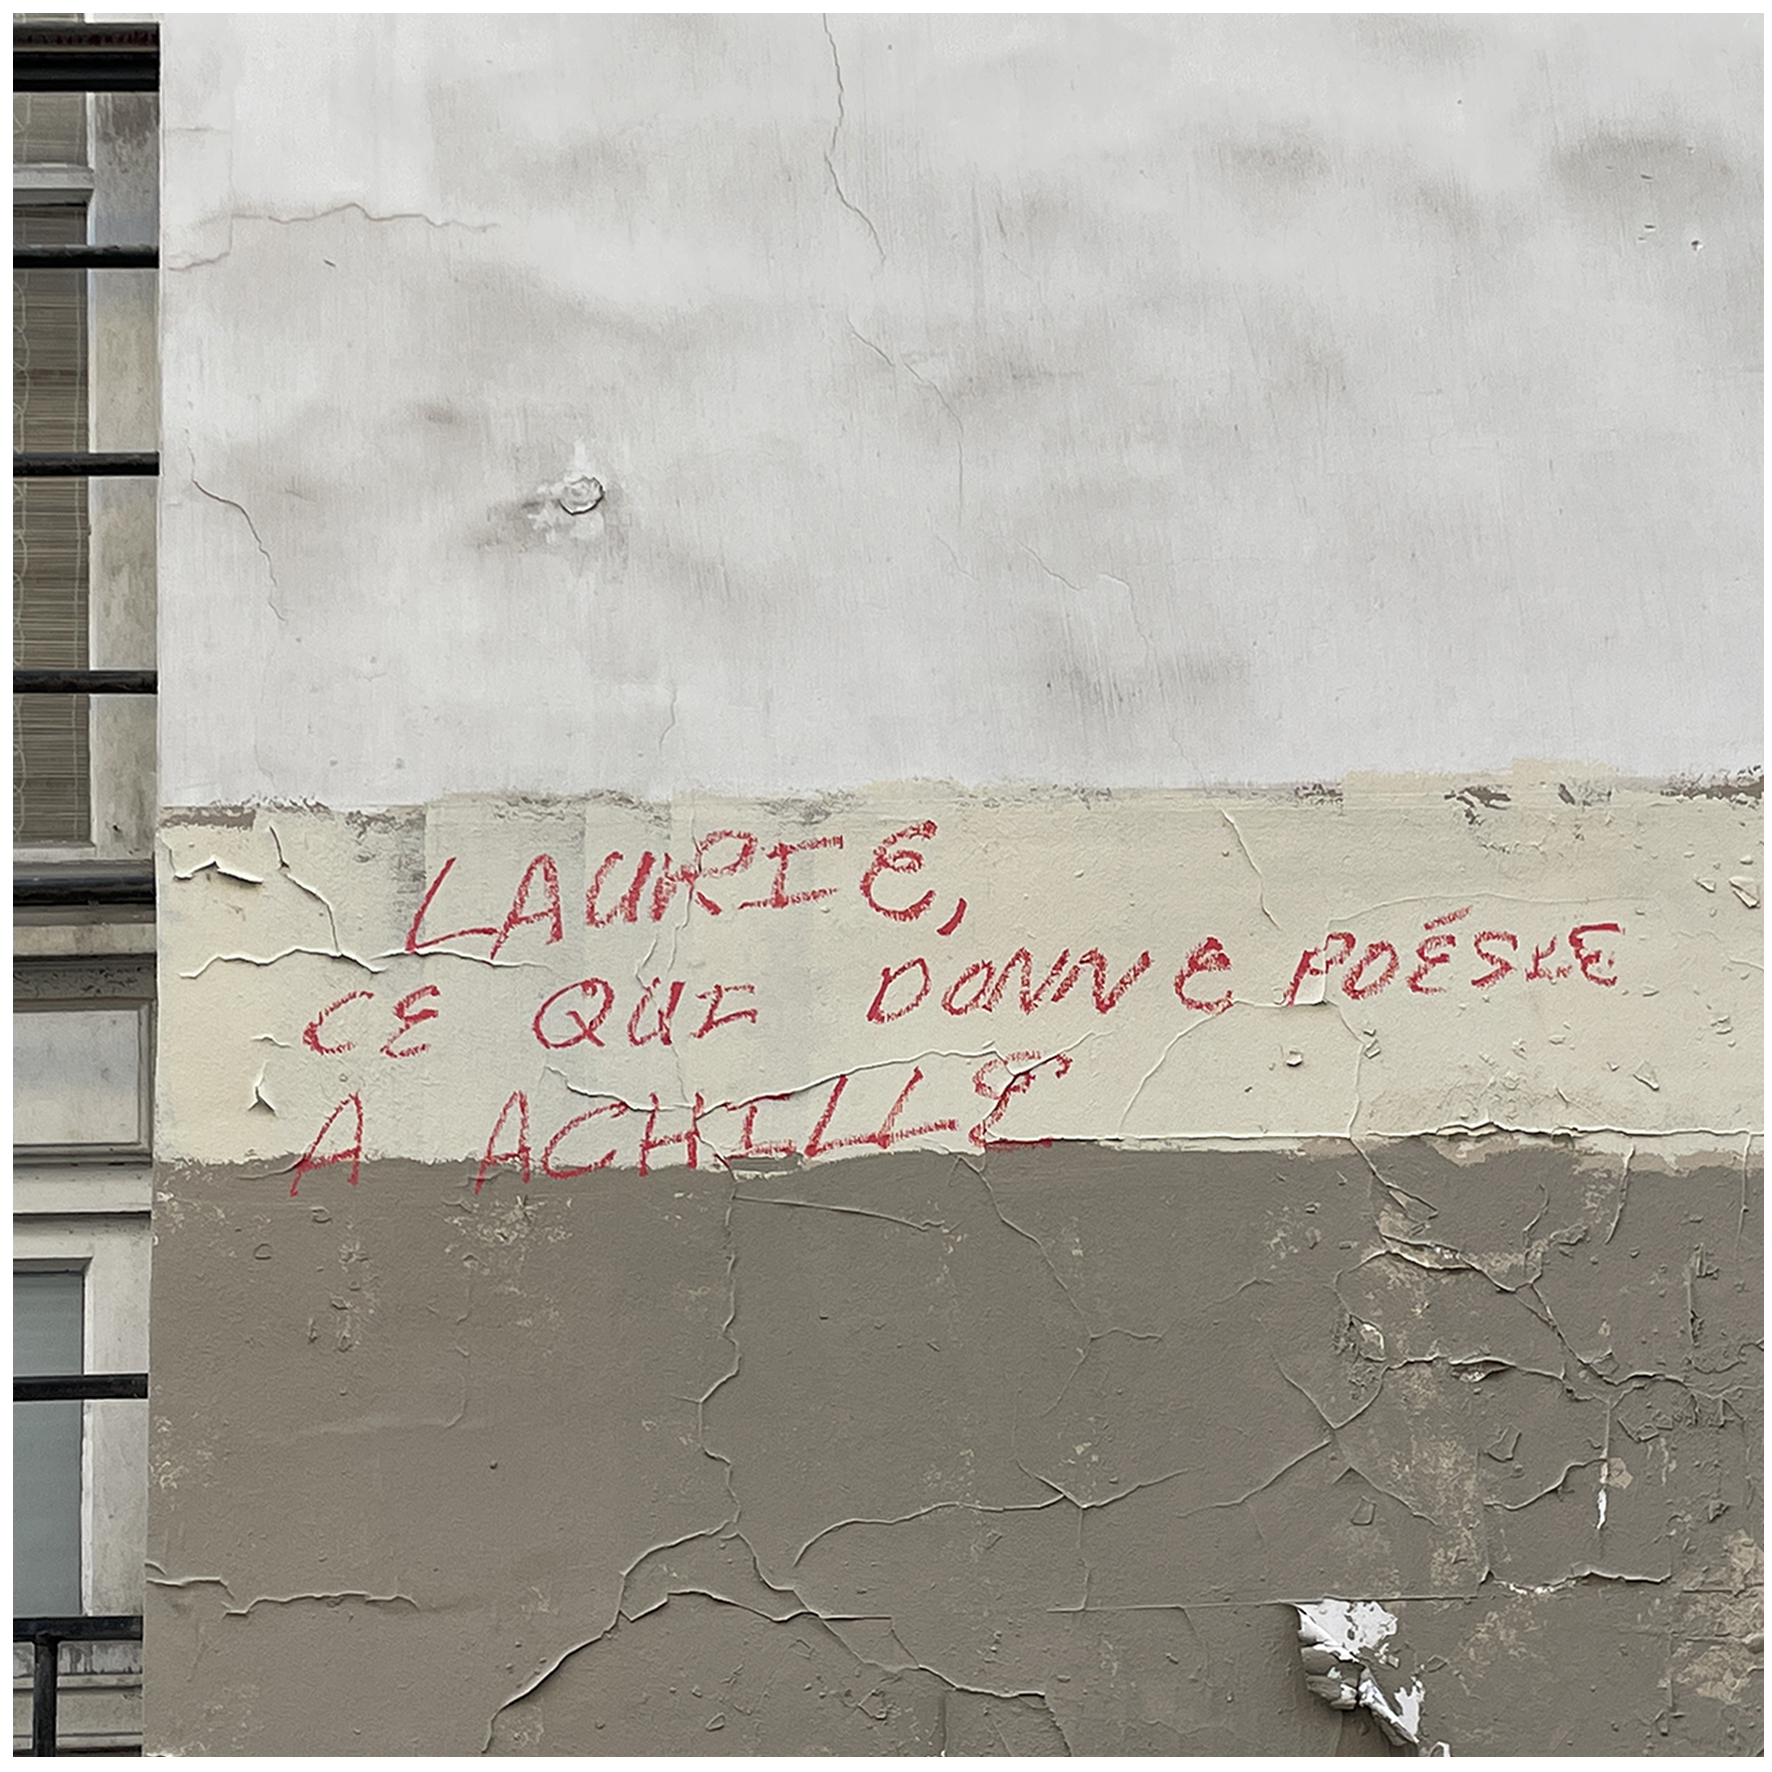 LAURIE,
CE QUI DONNE POÉSIE
A ACHILLE